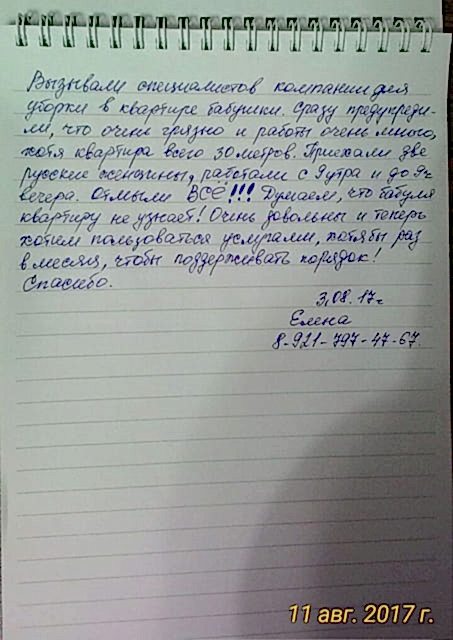 Вызывали специалистов компании для
уборки в квартире бабушки. Сразу предупреди-
ли, что очень грязно и работы очень много,
хотя квартира всего 30 метров. Приехали две
русские женщины, работали с 9 утра и до 9ч
вечера. Отмыли ВСЁ!!! Думаем, что бабуля
квартиру не узнает! Очень довольны и теперь
хотим пользоваться услугами, хотя бы раз
в месяц, чтобы поддерживать порядок!
Спасибо.
3,08.17г
Елена
8-921-797-47-67.
11 авг. 2017 г.